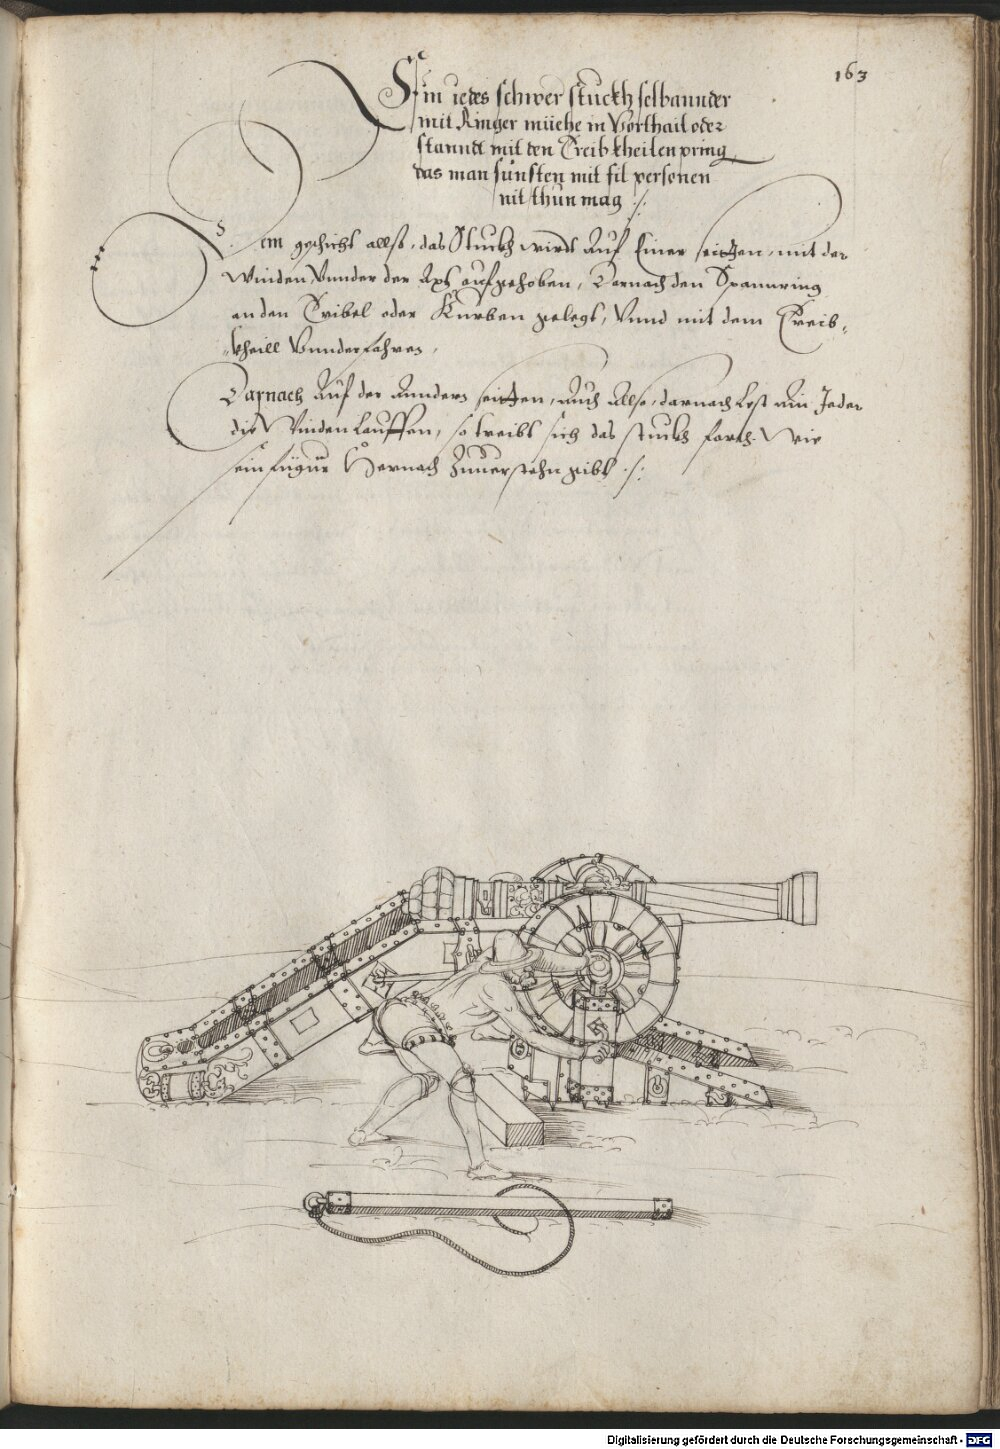 163
Ein iedes schwer stuckh selbannder
mit Ringer müehe in Vorthail oder
stanndt mit den Treibkheilen pring
das man sunsten mit fil personen
nit thun mag :/:
dem geschicht allso, das Stuckh wirdt Auf Einer seitten, mit der
Winden Vnnder der Axs aufgehoben, Darnach den Spannring
an den Tribel oder Kurben gelegt, Vnnd mit dem Treib,
kheill Vnnderfahren,
Darnach Auf der Anndern seitten, Auch Allso, darnach Lest Ain Jeder
die Winden Lauffen, so treibt sich das stuckh forth. Wie
sein figur Hernach Zuuerstehn gibt :/:
Digitalisierung gefördert durch die Deutsche Forschungsgemeinschaft - DFG